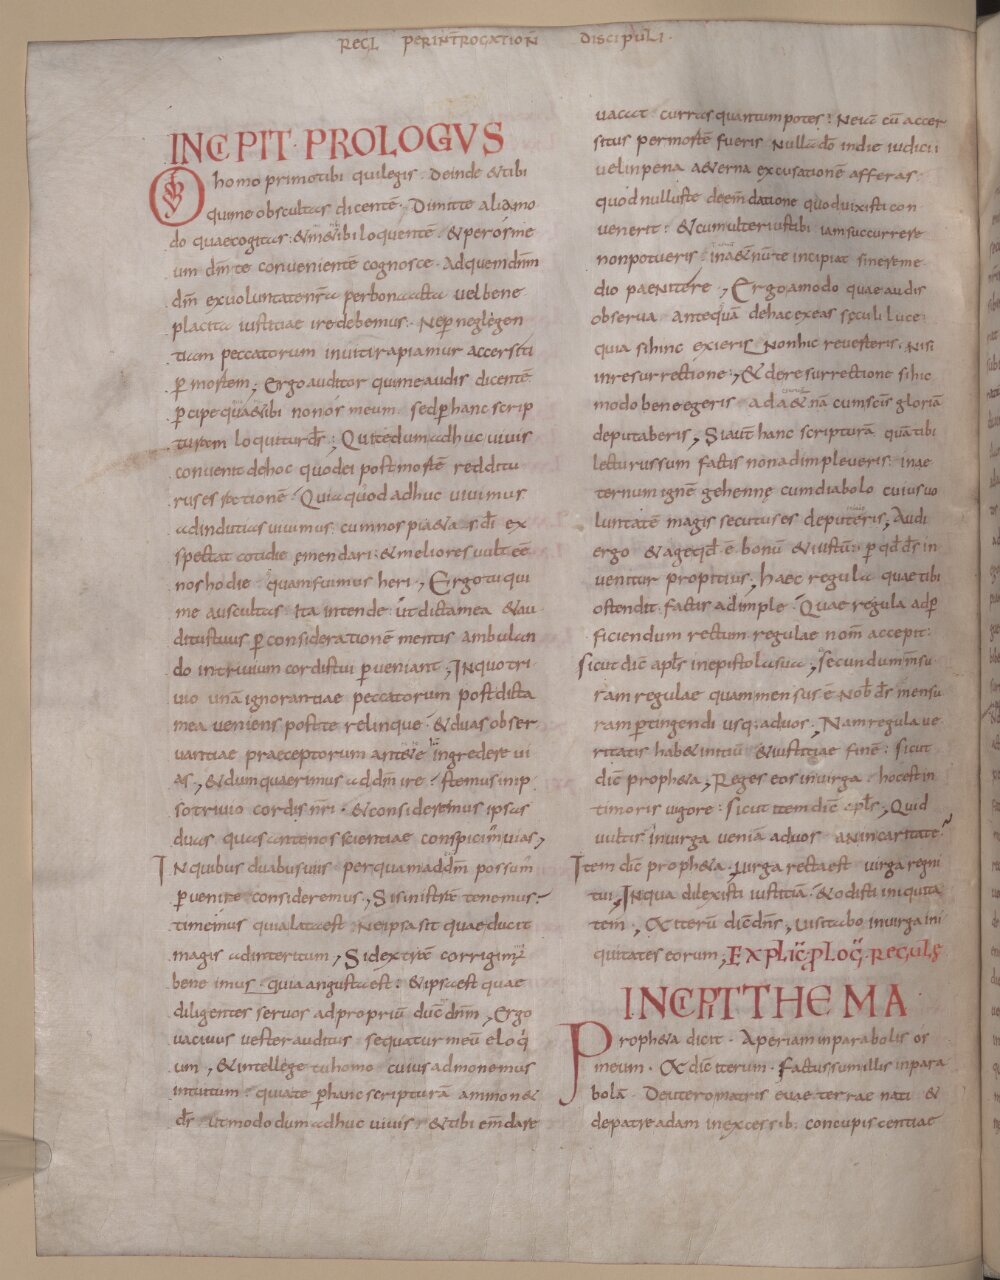 REGL PERINTROGATION̄ DISCIPULI.
INCIPIT PROLOGVS
O homo primo tibi qui legis. Deinde & tibi
qui me obscultas dicentē. Dimitte alia modo
do quae cogitas. & me tibi loquentē. & per os me
um dn̄m te convenientē cognosce. Ad quem dn̄m
dm̄ ex voluntate nr̄a per bona acta vel bene
placita iustitiae ire debemus. Ne p neglegen
tiam peccatorum inviti rapiamur accersiti
p mortem; Ergo auditor qui me audis dicentē
pcipe quae tibi non os meum. sed p hanc scrip
turam loquitur ds̄; Qui te dum adhuc vivis
convenit de hoc quod ei post mortē redditu
rus es rationē. Quia quod adhuc vivimus
ad indutias vivimus. cum nos pi&as dī ex
spectat cotidie emendari. & meliores vult eē
nos hodie quam fuimus heri, Ergo tu qui
me auscultas ita intende. ut dicta mea & au
ditus tuus p considerationē mentis ambulan
do in trivium cordis tui pveniant; In quo tri
vio unā ignorantiae peccatorum post dicta
mea veniens post te relinque. & duas obser
vantiae praeceptorum ante te ingredere vi
as, & dum quaerimus ad dm̄ ire. stemus in ip
so trivio cordis nr̄i. & consideremus ipsas
duas quas ante nos scientiae conspicim̄ vias,
In quibus duabus viis per quam ad dm̄ possum̄
pvenire consideremus, Si sinistrā tenemus.
timemus quia lata est. Ne ipsa sit quae ducit
magis ad interitum, Si dextrā corrigim̄
bene imus. quia angusta est. & ipsa est quae
diligentes servos ad propriū ducit dn̄m, Ergo
vacuus vester auditus sequatur meū eloq
um, & intellege tu homo cuius admonemus
intuitum. quia te p hanc scripturā ammon&
ds̄ ut modo dum adhuc vivis. & tibi em̄dare
vacat curras quantum potes. Ne iā cū accer
situs per mortē fueris. Nullā dō in die iudicii
vel in pena aeterna excusationē afferas.
quod nullus te de em̄datione quod vixisti con
venerit. & cum ulterius tibi iam succurrere
non potueris. in aet̄nū te incipiat sine reme
dio paenitere, Ergo amodo quae audis
observa antequā de hac exeas seculi luce.
quia si hinc exieris. Non hic reverteris. Nisi
in resurrectione, & de resurrectione si hic
modo bene egeris ad aet̄nā cum scīs gloriā
deputaberis, Si aut̄ hanc scripturā quā tibi
lecturus sum factis non adimpleveris. in ae
ternum ignē gehennę cum diabolo cuius vo
luntatē magis secutus es deputeris, Audi
ergo & age qd̄ ē bonū & iustū. p qd̄ ds̄ in
venitur propitius, haec regula quae tibi
ostendit. factis adimple. Quae regula ad p
ficiendum rectum regulae nom̄ accepit.
sicut dic̄ apl̄s in epistola sua, secundum m̄su
ram regulae quam mensus ē nob ds̄ mensu
ram ptingendi usq. ad vos, Nam regula ve
ritatis hab& initiū & iustitiae finē. sicut
dic̄ proph&a, Reges eos in virga. hoc est in
timoris vigore. sicut item dic̄ apl̄s, Quid
vultis in virga veniā ad vos an in caritate?
Item dic̄ proph&a. virga recta est virga regni
tui, In qua dilexisti iustitiā. & odisti iniquita
tem, Et iterū dic̄ dn̄s, visitabo in virga ini
quitates eorum, EXPLIC̄ PLOG̅. REGULĘ
INCIPIT THEMA
Proph&a dicit. Aperiam in parabolis os
meum. Et dic̄ iterum. factus sum illis in para
bolā. Deutero matris evae terrae nati &
de patre adam in excessib. concupiscentiae